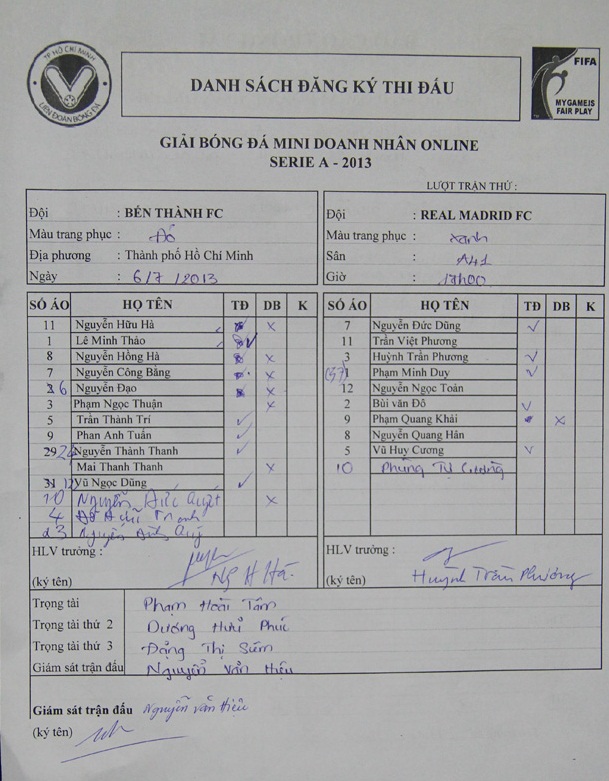 TP HỒ CHÍ MINH
LIÊN ĐOÀN BÓNG ĐÁ
DANH SÁCH ĐĂNG KÝ THI ĐẤU
FIFA
MY GAME IS
FAIR PLAY
GIẢI BÓNG ĐÁ MINI DOANH NHÂN ONLINE
SERIE A - 2013
LƯỢT TRẬN THỨ :
Đội : BẾN THÀNH FC
Màu trang phục : Đỏ
Địa phương : Thành phố Hồ Chí Minh
Ngày : 6/7/2013
Đội : REAL MADRID FC
Màu trang phục : xanh
Sân : A41
Giờ : 17h00
SỐ ÁO HỌ TÊN TĐ DB K
11 Nguyễn Hữu Hà x
1 Lê Minh Thảo
8 Nguyễn Hồng Hà x
7 Nguyễn Công Bằng x
26 Nguyễn Đạo x
3 Phạm Ngọc Thuận x
5 Trần Thành Trí ✓
9 Phan Anh Tuấn ✓
29 Nguyễn Thành Thanh ✓
Mai Thanh Thanh x
31 12 Vũ Ngọc Dũng ✓
10 Nguyễn Đức Quyết x
4
23 Nguyễn
HLV trưởng :
(ký tên) Ng H Hà
SỐ ÁO HỌ TÊN TĐ DB K
7 Nguyễn Đức Dũng ✓
11 Trần Việt Phương
3 Huỳnh Trần Phương ✓
Phạm Minh Duy ✓
12 Nguyễn Ngọc Toản
2 Bùi văn Đô ✓
9 Phạm Quang Khải x
8 Nguyễn Quang Hân
5 Vũ Huy Cương ✓
10 Phùng Tự Cường
HLV trưởng :
(ký tên) Huỳnh Trần Phương
Trọng tài Phạm Hoài Tâm
Trọng tài thứ 2 Dương Hữu Phúc
Trọng tài thứ 3 Đặng Thị Sứm
Giám sát trận đấu Nguyễn Văn Hiếu
Giám sát trận đấu Nguyễn văn Hiếu
(ký tên)